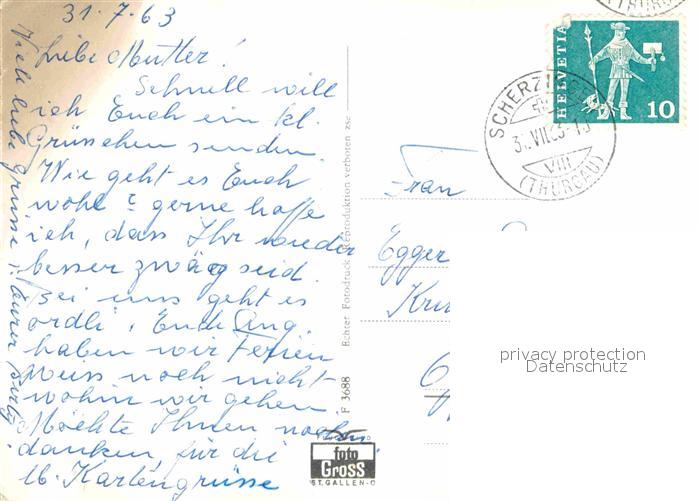 31.7.63
Liebe Mutter!
Schnell will
ich Euch ein kl.
Grüsschen senden.
Wie geht es Euch
wohl? gerne hoffe
ich, dass Ihr wieder
besser zwäg seid.
bei uns geht es
ordli, Ende Aug.
haben wir Ferien
weiss noch nicht
wohin wir gehen.
Möchte Ihnen noch
danken für die
lb. Kartengrüsse
Viele liebe Grüsse
Echter Fotodruck Reproduktion verboten
F 3688
foto
GROSS
ST. GALLEN-O
HELVETIA
10
VIII
(THURGAU)
(THURGAU)
Frau
Egger
privacy protection
Datenschutz